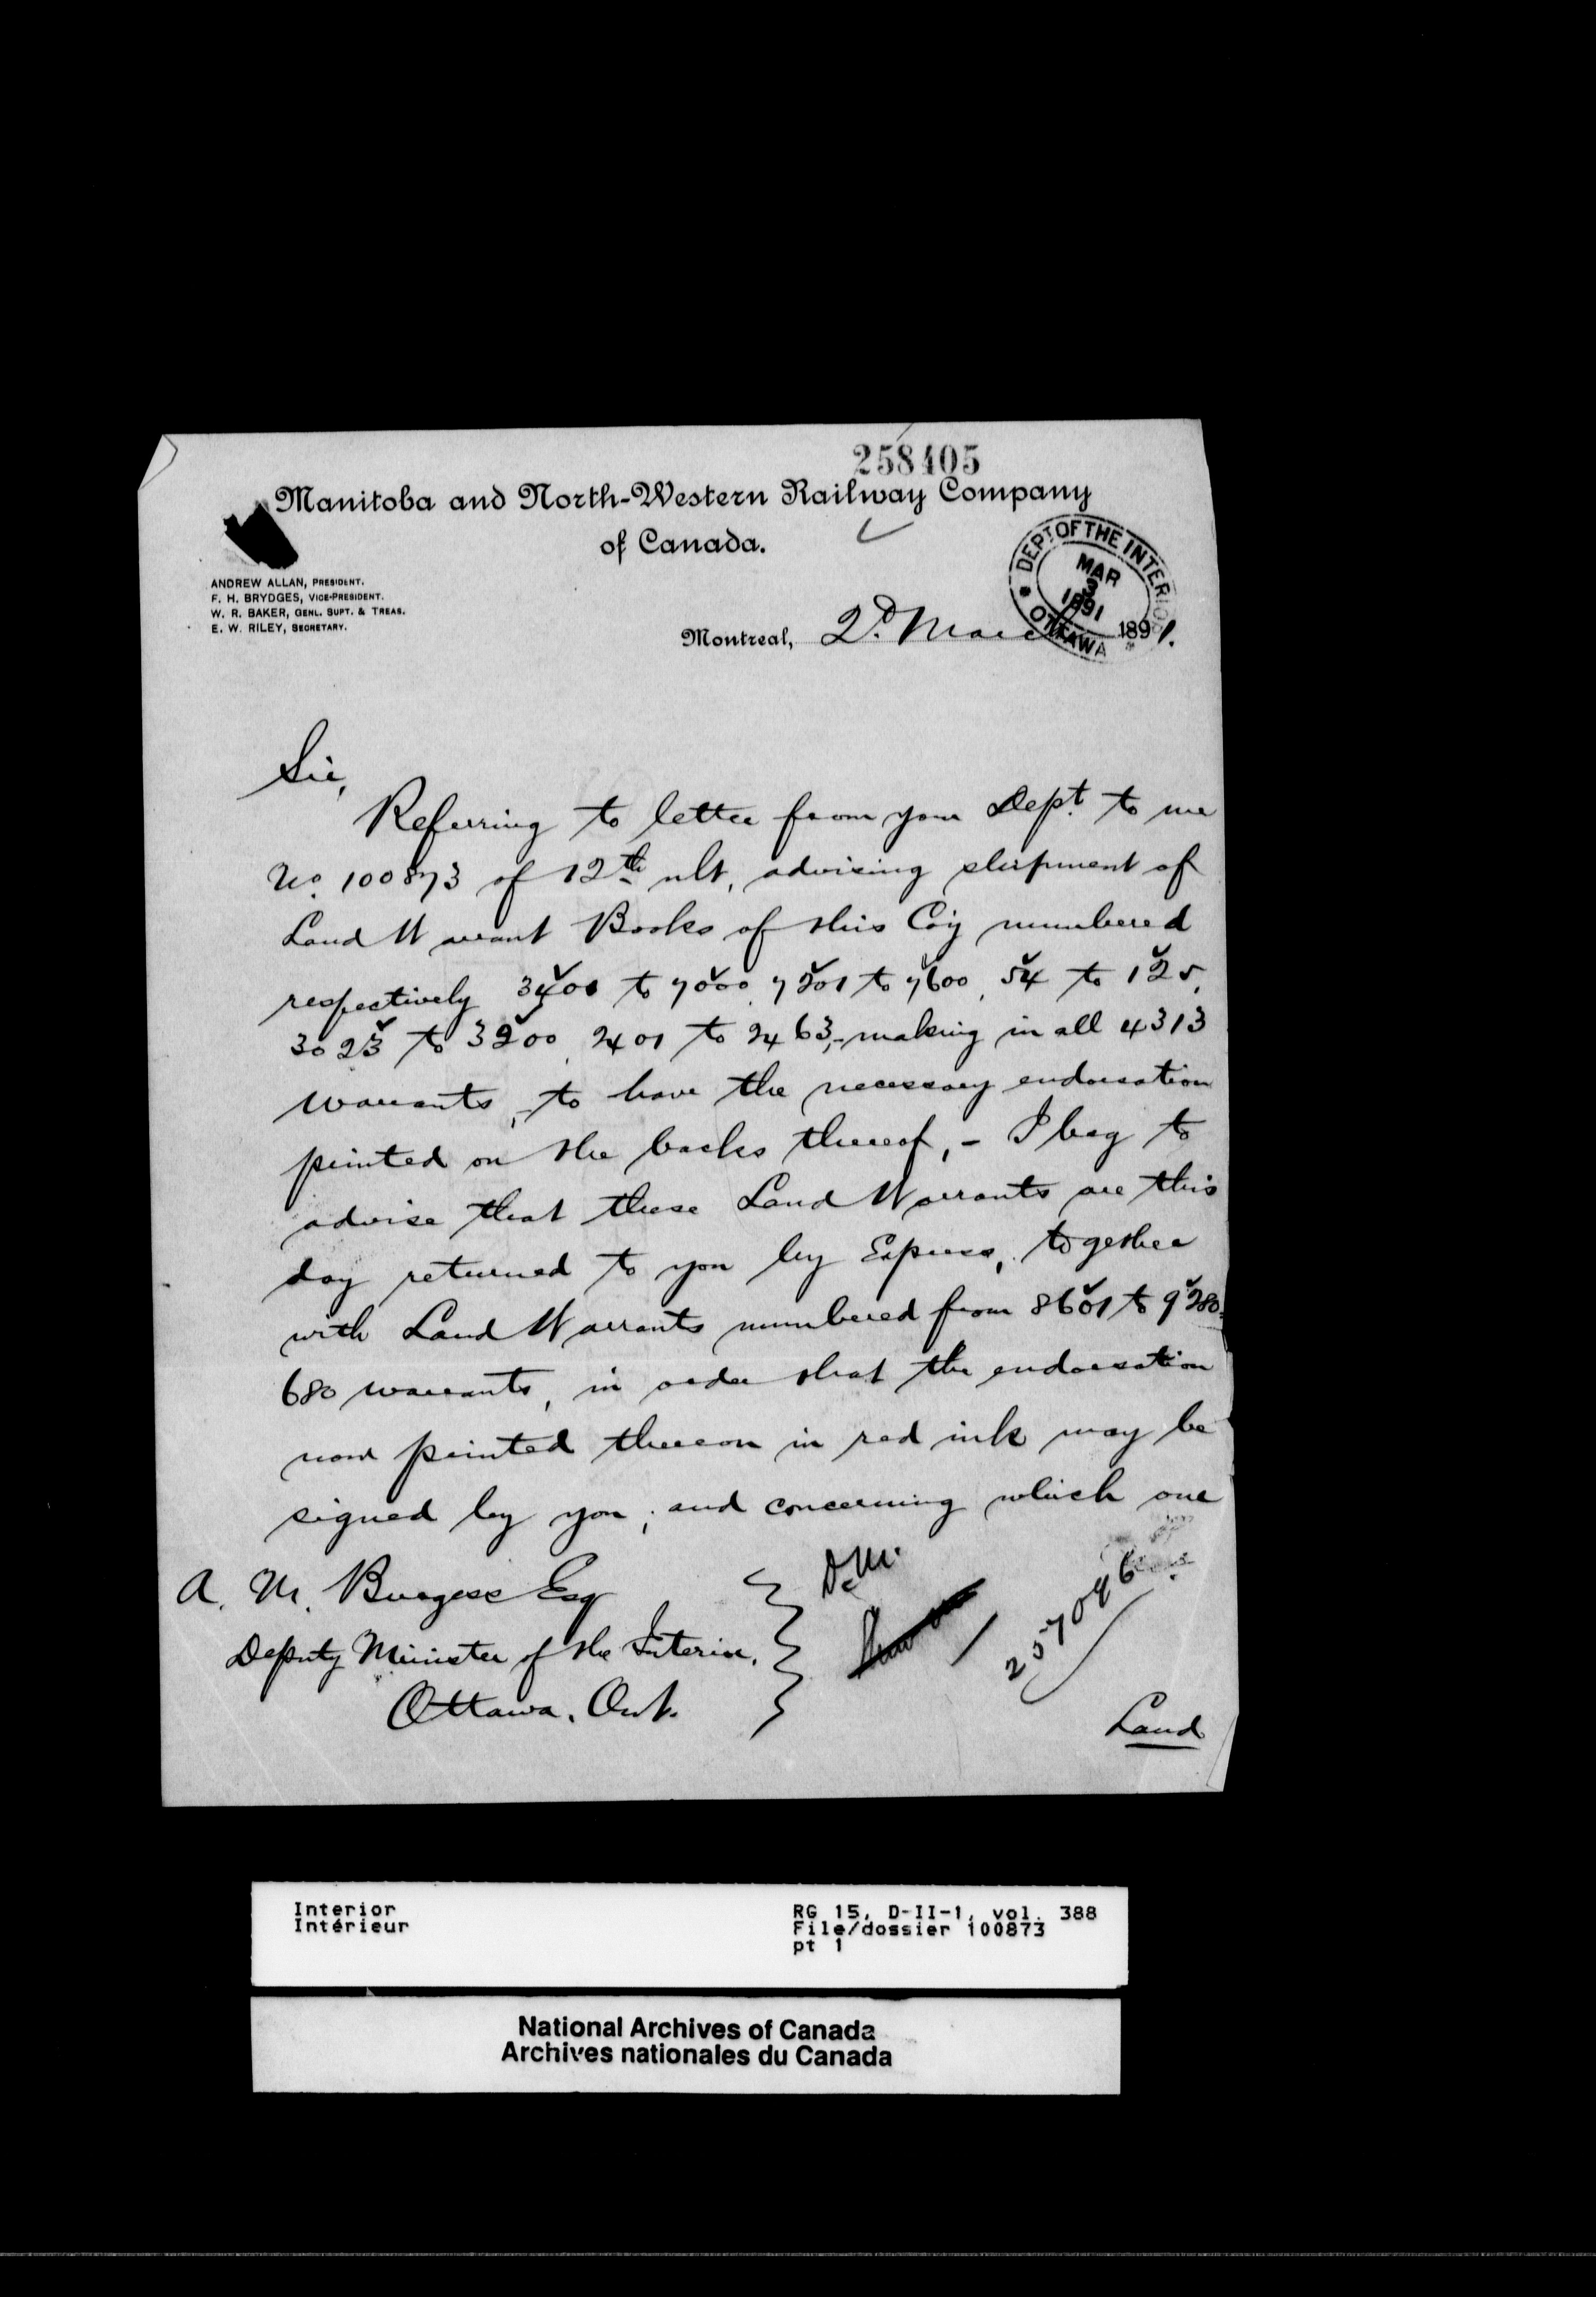 258405
Manitoba and North-Western Railway Company
of Canada.
ANDREW ALLAN, PRESIDENT.
F. H. BRYDGES, VICE-PRESIDENT.
W. R. BAKER, GENL. SUPT. & TREAS.
E. W. RILEY, SECRETARY.
DEPT. OF THE INTERIOR
MAR
3
1891
OTTAWA
Montreal, 2d. March 1891.
Sir,
Referring to letter from your Dept. to me
No. 100873 of 12th ult, advising shipment of
Land Warrant Books of this Co'y numbered
respectively 3401 to 7000, 7201 to 7600, 54 to 125,
3023 to 3200, 2401 to 2463,- making in all 4313
warrants,- to have the necessary endorsation
printed on the backs thereof,- I beg to
advise that these Land Warrants are this
day returned to you by Express, together
with Land Warrants numbered from 8601 to 9280-
680 warrants, in order that the endorsation
now printed thereon in red ink may be
signed by you; and concerning which one
A. M. Burgess Esq
Deputy Minister of the Interior,
Ottawa, Ont.
D.M.
257046
Land
Interior
Intérieur
RG 15, D-II-1, vol. 388
File/dossier 100873
pt 1
National Archives of Canada
Archives nationales du Canada